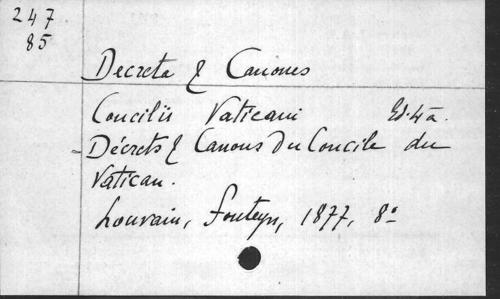 247
85
Decreta & Canones
Concilii Vaticani Ed. 4a.
Décrets & Canons Du Concile du
Vatican.
Louvain, Fonteyn, 1877, 8°